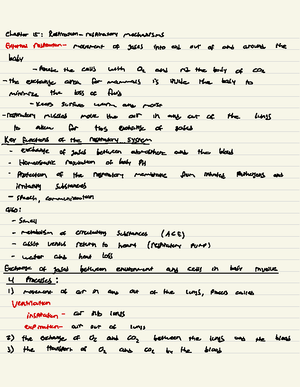 Chapter 15: Respiration - respiratory mechanisms
External respiration - movement of gases into and out of and around the
body
- Provide the cells with O2 and rid the body of CO2
- the exchange area for mammals is inside the body to
minimize the loss of fluid
- Keeps surface warm and moist
- respiratory muscles move the air in and out of the lungs
to allow for this exchange of gases
Key functions of the respiratory system
- exchange of gases between atmosphere and the blood
- Homeostatic regulation of body PH
- Protection of the respiratory membrane from inhaled pathogens and
irritating substances
- speech, communication
Also:
- Smell
- metabolism of circulating substances (ACE)
- assist venous return to heart (respiratory pump)
- water and heat loss
Exchange of gases between environment and cells in body involve
4 Processes:
1) movement of air in and out of the lungs, process called
Ventilation
inspiration - air into lungs
expiration - air out of lungs
2) the exchange of O2 and CO2 between the lungs and the blood
3) the transport of O2 and CO2 by the blood